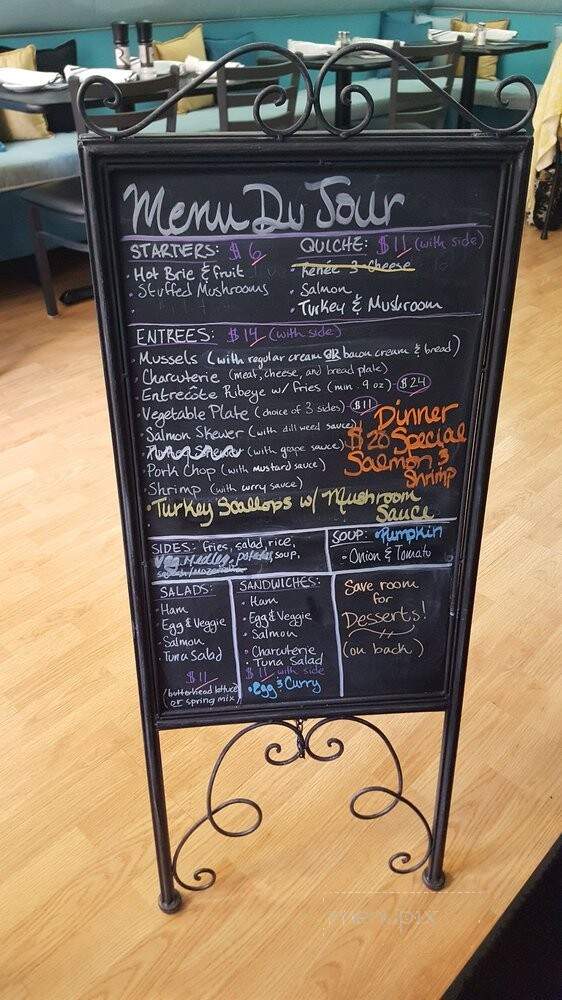 Menu Du Jour
STARTERS: $6
• Hot Brie & fruit
• Stuffed Mushrooms
QUICHE: $11 (with side)
• Renée 3 Cheese
• Salmon
• Turkey & Mushroom
ENTREES: $14 (with side)
• Mussels (with regular cream OR bacon cream & bread)
• Charcuterie (meat, cheese, and bread plate)
• Entrecôte Ribeye w/ Fries (min. 9 oz) - $24
• Vegetable Plate (choice of 3 sides) - $11
• Salmon Skewer (with dill weed sauce)
(with grape sauce)
• Pork Chop (with mustard sauce)
• Shrimp (with curry sauce)
• Turkey Scallops w/ Mushroom
Sauce
Dinner
$20 Special
Salmon &
Shrimp
SIDES: fries, salad, rice,
veg. medley, potatoes, soup,
SOUP: • Pumpkin
• Onion & Tomato
SALADS:
• Ham
• Egg & Veggie
• Salmon
• Tuna Salad
$11
(butterhead lettuce
or spring mix)
SANDWICHES:
• Ham
• Egg & Veggie
• Salmon
• Charcuterie
• Tuna Salad
$11 with side
• Egg & Curry
Save room
for
Desserts!
(on back)
menupix